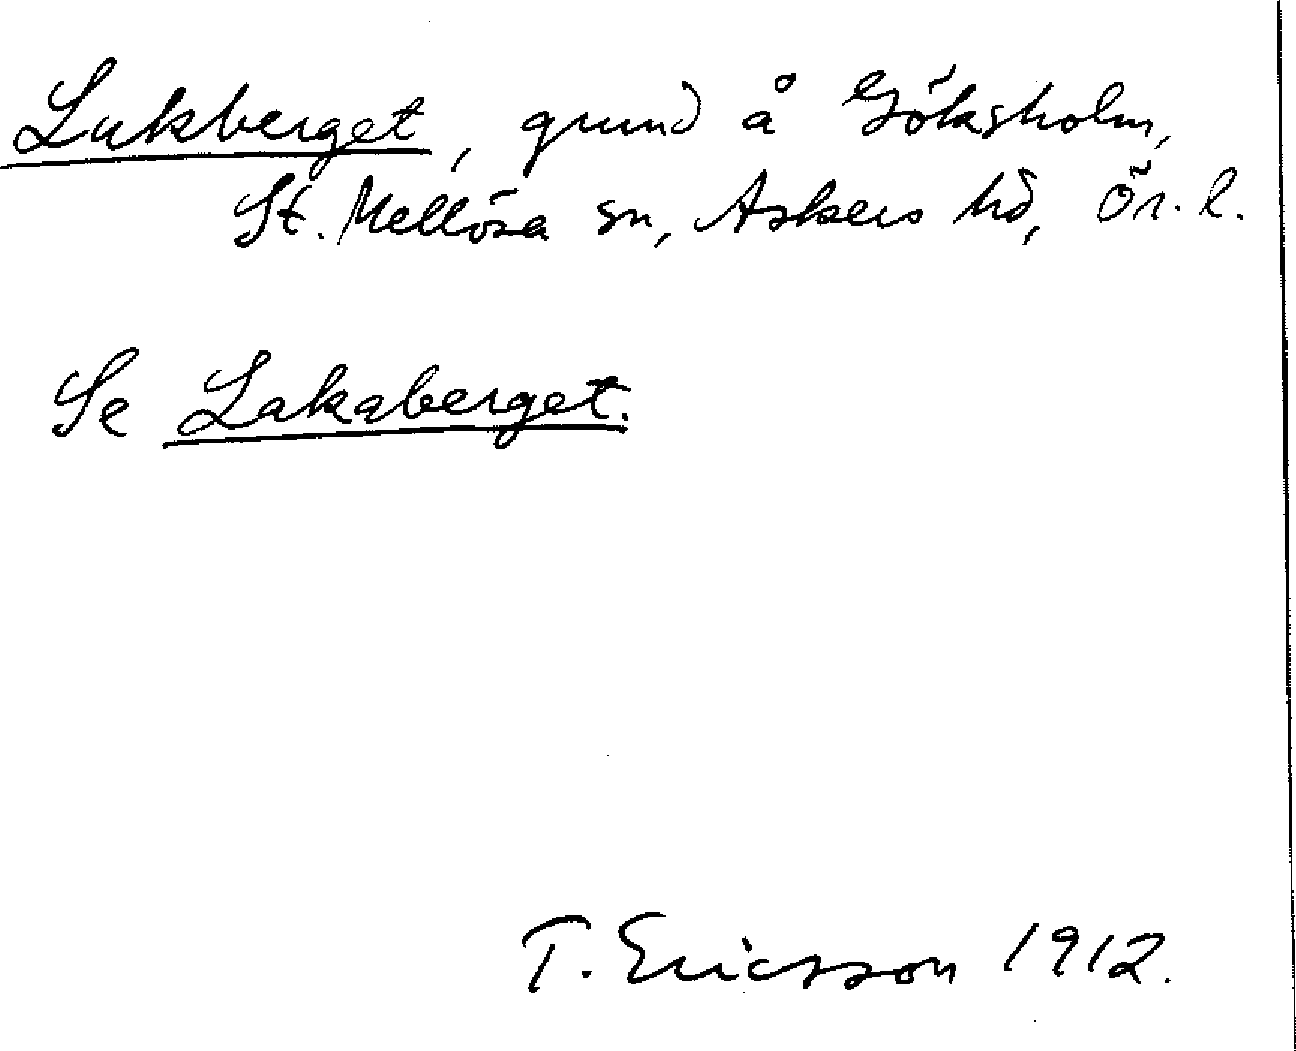 Lukberget, grund å Göksholm,
St. Mellösa sn, Askers hd, Ör. l.
Se Lakaberget.
T. Ericsson 1912.